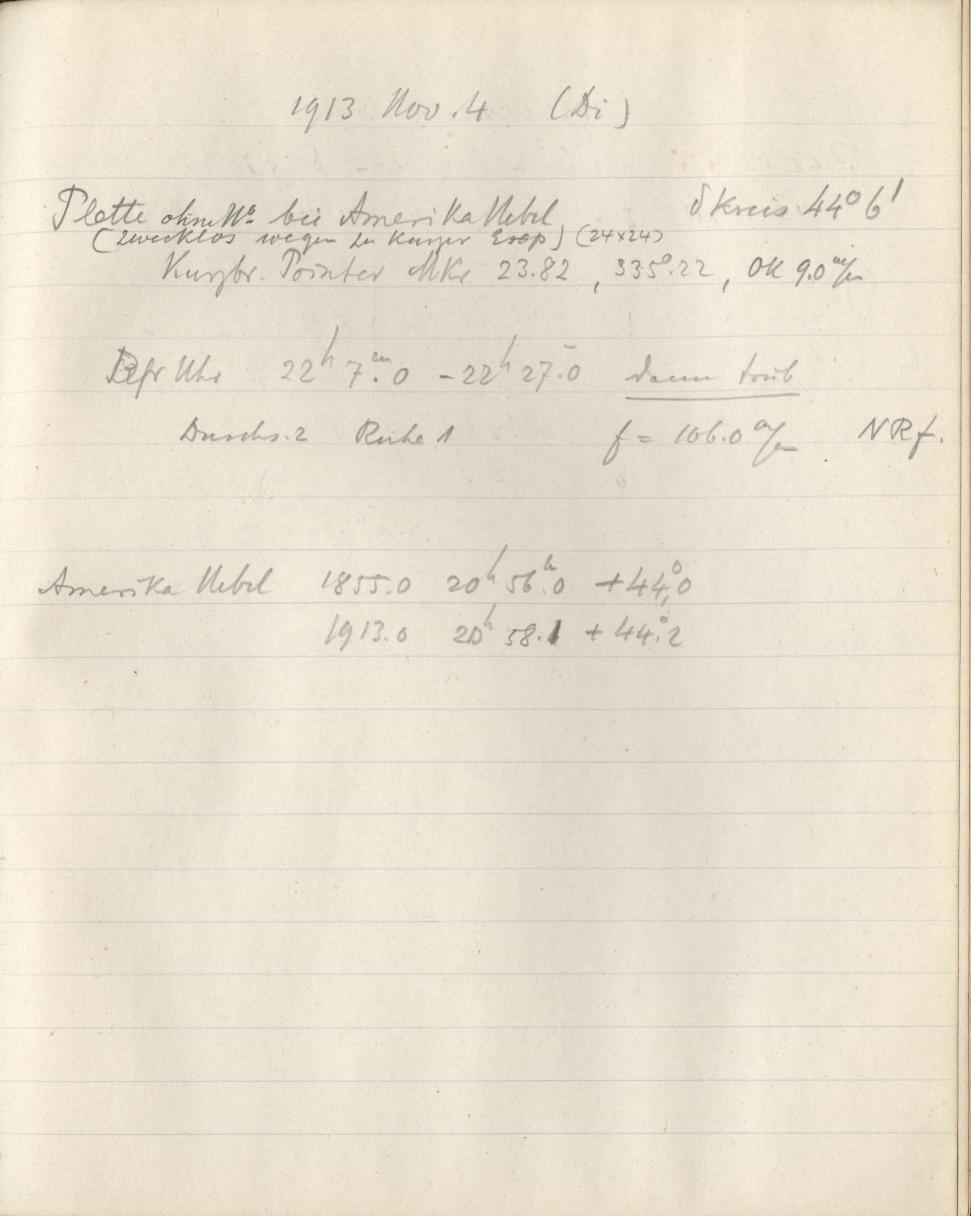 1913 Nov. 4 (Di)
Platte ohne No bei Amerika Nebel δ Kreis 44° 6'
(zwecklos wegen zu kurzer Exp) (24x24)
Kurzbr. Pointer MKr 23.82, 335°.22, OK 9.0 m/m
Rfr Uhr 22h 7m.0 - 22h 27.0 dann trüb
Durchs. 2 Ruhe 1 f = 106.0 NRf.
Amerika Nebel 1855.0 20h 56m.0 +44°.0
1913.0 20h 58.1 +44°.2